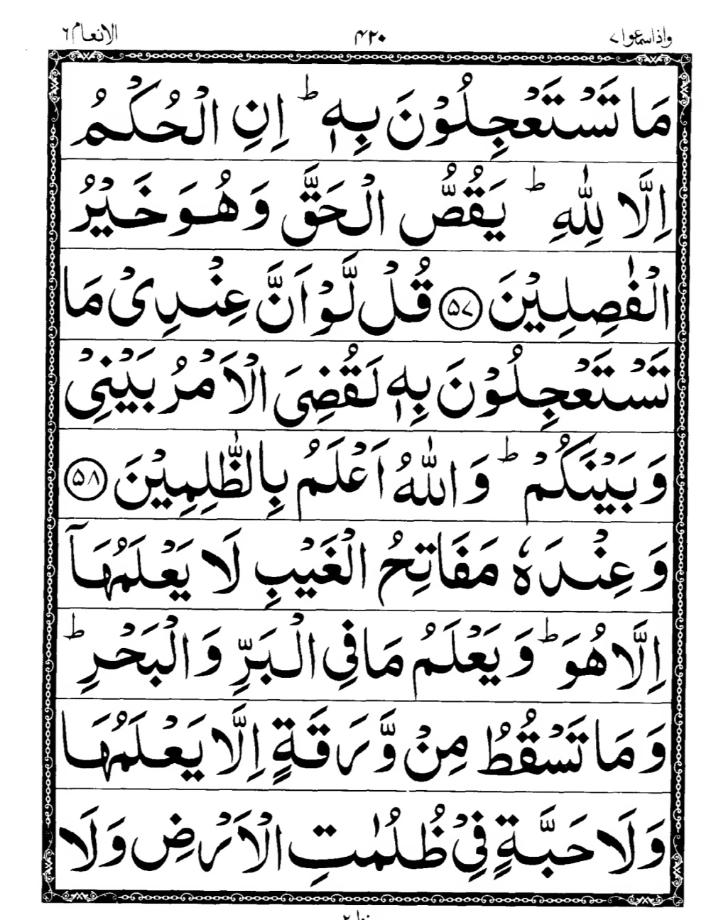 واذاسمعوا ۷ ۴۲۰ الانعام ٦
مَا تَسْتَعْجِلُوْنَ بِهٖ ؕ اِنِ الْحُكْمُ
اِلَّا لِلّٰهِ ؕ يَقُصُّ الْحَقَّ وَهُوَ خَيْرُ
الْفٰصِلِيْنَ ۵۷ قُلْ لَّوْ اَنَّ عِنْدِىْ مَا
تَسْتَعْجِلُوْنَ بِهٖ لَقُضِىَ الْاَمْرُ بَيْنِىْ
وَبَيْنَكُمْ ؕ وَاللّٰهُ اَعْلَمُ بِالظّٰلِمِيْنَ ۵۸
وَعِنْدَهٗ مَفَاتِحُ الْغَيْبِ لَا يَعْلَمُهَاۤ
اِلَّا هُوَ ؕ وَيَعْلَمُ مَا فِى الْبَرِّ وَالْبَحْرِ ؕ
وَمَا تَسْقُطُ مِنْ وَّرَقَةٍ اِلَّا يَعْلَمُهَا
وَلَا حَبَّةٍ فِىْ ظُلُمٰتِ الْاَرْضِ وَلَا